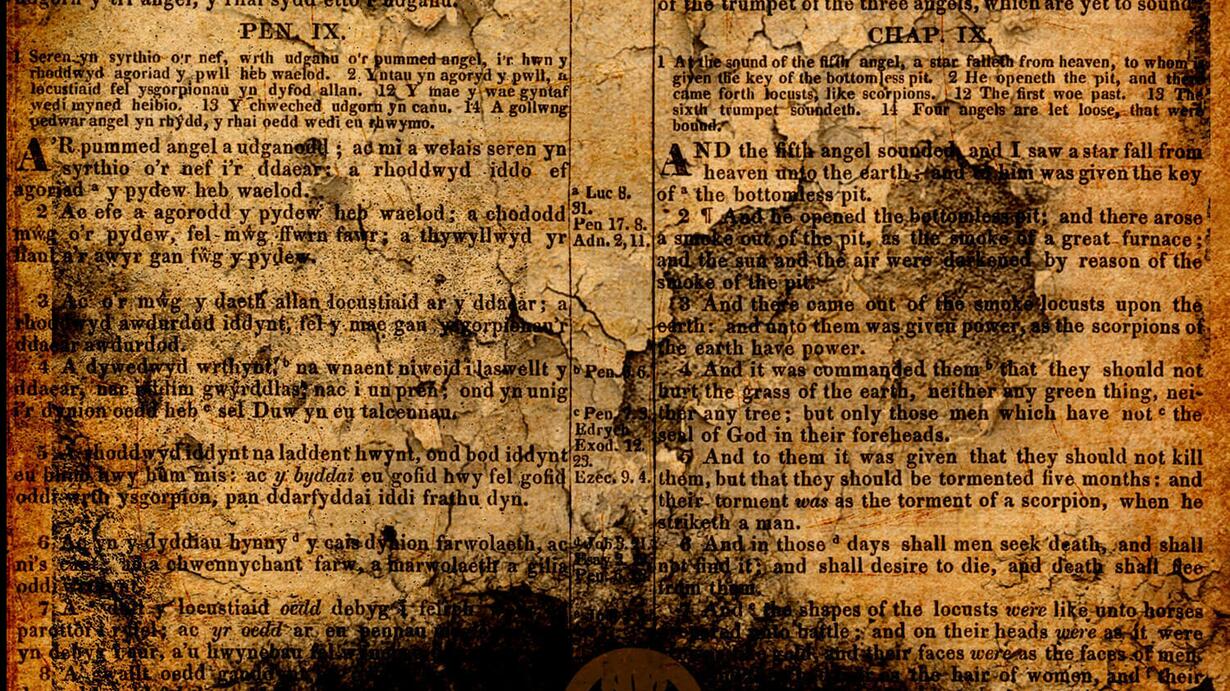 PEN. IX.
1 Seren yn syrthio o'r nef, wrth udganu o'r pummed angel, i'r hwn y
rhoddwyd agoriad y pwll heb waelod. 2 Yntau yn agoryd y pwll, a
locustiaid fel ysgorpionau yn dyfod allan. 12 Y mae y wae gyntaf
wedi myned heibio. 13 Y chweched udgorn yn canu. 14 A gollwng
pedwar angel yn rhydd, y rhai oedd wedi eu rhwymo.
A'R pummed angel a udganodd; ac mi a welais seren yn
syrthio o'r nef i'r ddaear: a rhoddwyd iddo ef
agoriad ª y pydew heb waelod.
2 Ac efe a agorodd y pydew heb waelod; a chododd
mwg o'r pydew, fel mwg ffwrn fawr; a thywyllwyd yr
haul a'r awyr gan fŵg y pydew.
3 Ac o'r mwg y daeth allan locustiaid ar y ddaear; a
rhoddwyd awdurdod iddynt, fel y mae gan ysgorpionau'r
ddaear awdurdod.
4 A dywedwyd wrthynt, ᵇ na wnaent niweid i laswellt y
ddaear, nac i ddim gwyrddlas, nac i un pren; ond yn unig
i'r dynion oedd heb ᶜ sel Duw yn eu talcennau.
5 A rhoddwyd iddynt na laddent hwynt, ond bod iddynt
eu hwy bum mis: ac y byddai eu gofid hwy fel gofid
oddi wrth ysgorpion, pan ddarfyddai iddi frathu dyn.
6 Ac yn y dyddiau hynny ᵈ y cais dynion farwolaeth, ac
ni's a chwennychant farw, a marwolaeth a gilia
oddi
7 A y locustiaid oedd debyg i
ac yr oedd ar eu pennau
yn debyg i aur, a'u hwynebau fel
8 A gwallt oedd
ª Luc 8.
31.
Pen 17. 8.
Adn. 2, 11.
ᵇ Pen. 6.6.
ᶜ Pen. 7.3.
Edrych
Exod. 12.
23.
Ezec. 9. 4.
ᵈ Job 3. 21.
of the trumpet of the three angels, which are yet to sound.
CHAP. IX.
1 At the sound of the fifth angel, a star falleth from heaven, to whom is
given the key of the bottomless pit. 2 He openeth the pit, and there
came forth locusts, like scorpions. 12 The first woe past. 13 The
sixth trumpet soundeth. 14 Four angels are let loose, that were
bound.
AND the fifth angel sounded, and I saw a star fall from
heaven unto the earth: and to him was given the key
of ª the bottomless pit.
2 ¶ And he opened the bottomless pit; and there arose
a smoke out of the pit, as the smoke of a great furnace;
and the sun and the air were darkened by reason of the
smoke of the pit.
3 And there came out of the smoke locusts upon the
earth: and unto them was given power, as the scorpions of
the earth have power.
4 And it was commanded them ᵇ that they should not
hurt the grass of the earth, neither any green thing, nei-
ther any tree; but only those men which have not ᶜ the
seal of God in their foreheads.
5 And to them it was given that they should not kill
them, but that they should be tormented five months: and
their torment was as the torment of a scorpion, when he
striketh a man.
6 And in those ᵈ days shall men seek death, and shall
not find it; and shall desire to die, and death shall flee
from them.
7 And ᵉ the shapes of the locusts were like unto horses
prepared unto battle; and on their heads were as it were
gold, and their faces were as the faces of men.
as the hair of women, and ᶠ their